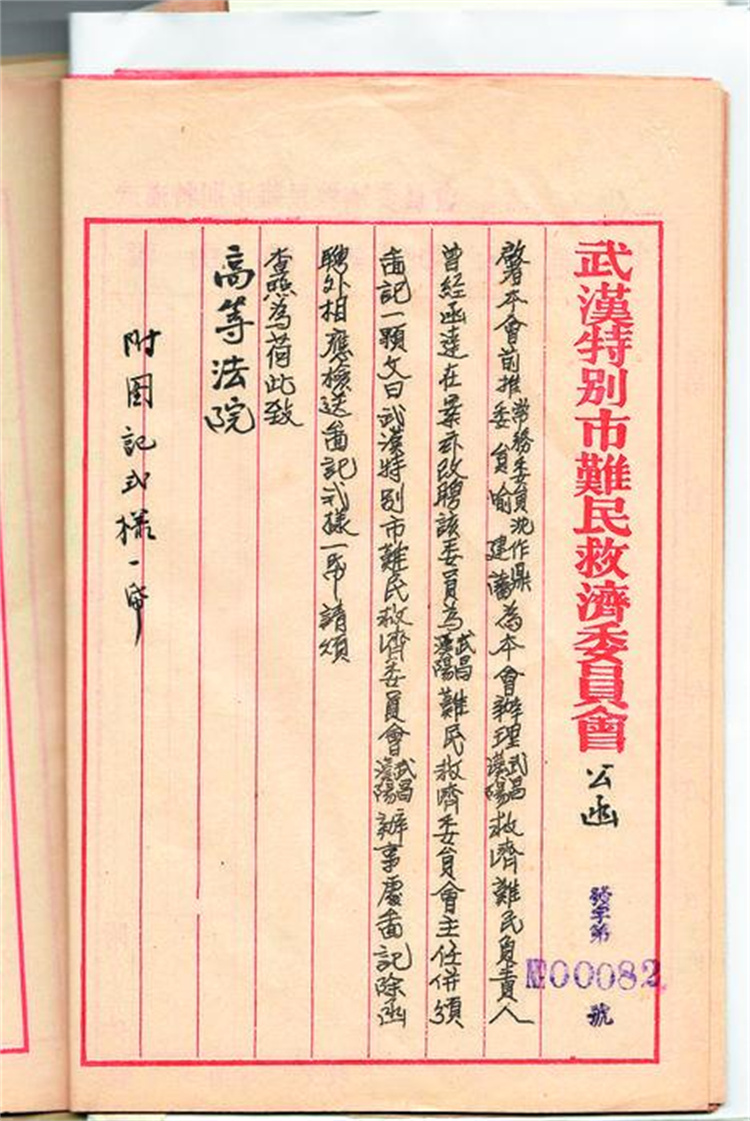 武漢特別市難民救濟委員會公函 發字第 №00082 號
啓者本會前推常務委員沈作鼎委員喻建藩為本會辦理武昌漢陽救濟難民負責人
曾經函達在案亦改聘該委員為武昌漢陽難民救濟委員會主任併頒
圖記一顆文曰武漢特別市難民救濟委員會武昌漢陽辦事處圖記除函
聘外相應檢送圖記式樣一帋請頒
查照為荷此致
高等法院
附圖記式樣一帋